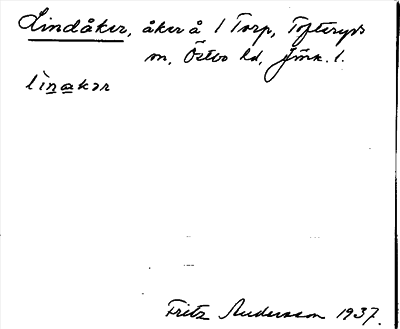 Lindåker, åker å 1 Torp, Tofteryds
sn, Östbo hd, Jönk. l.
lìnakər
Fritz Andersson 1937.